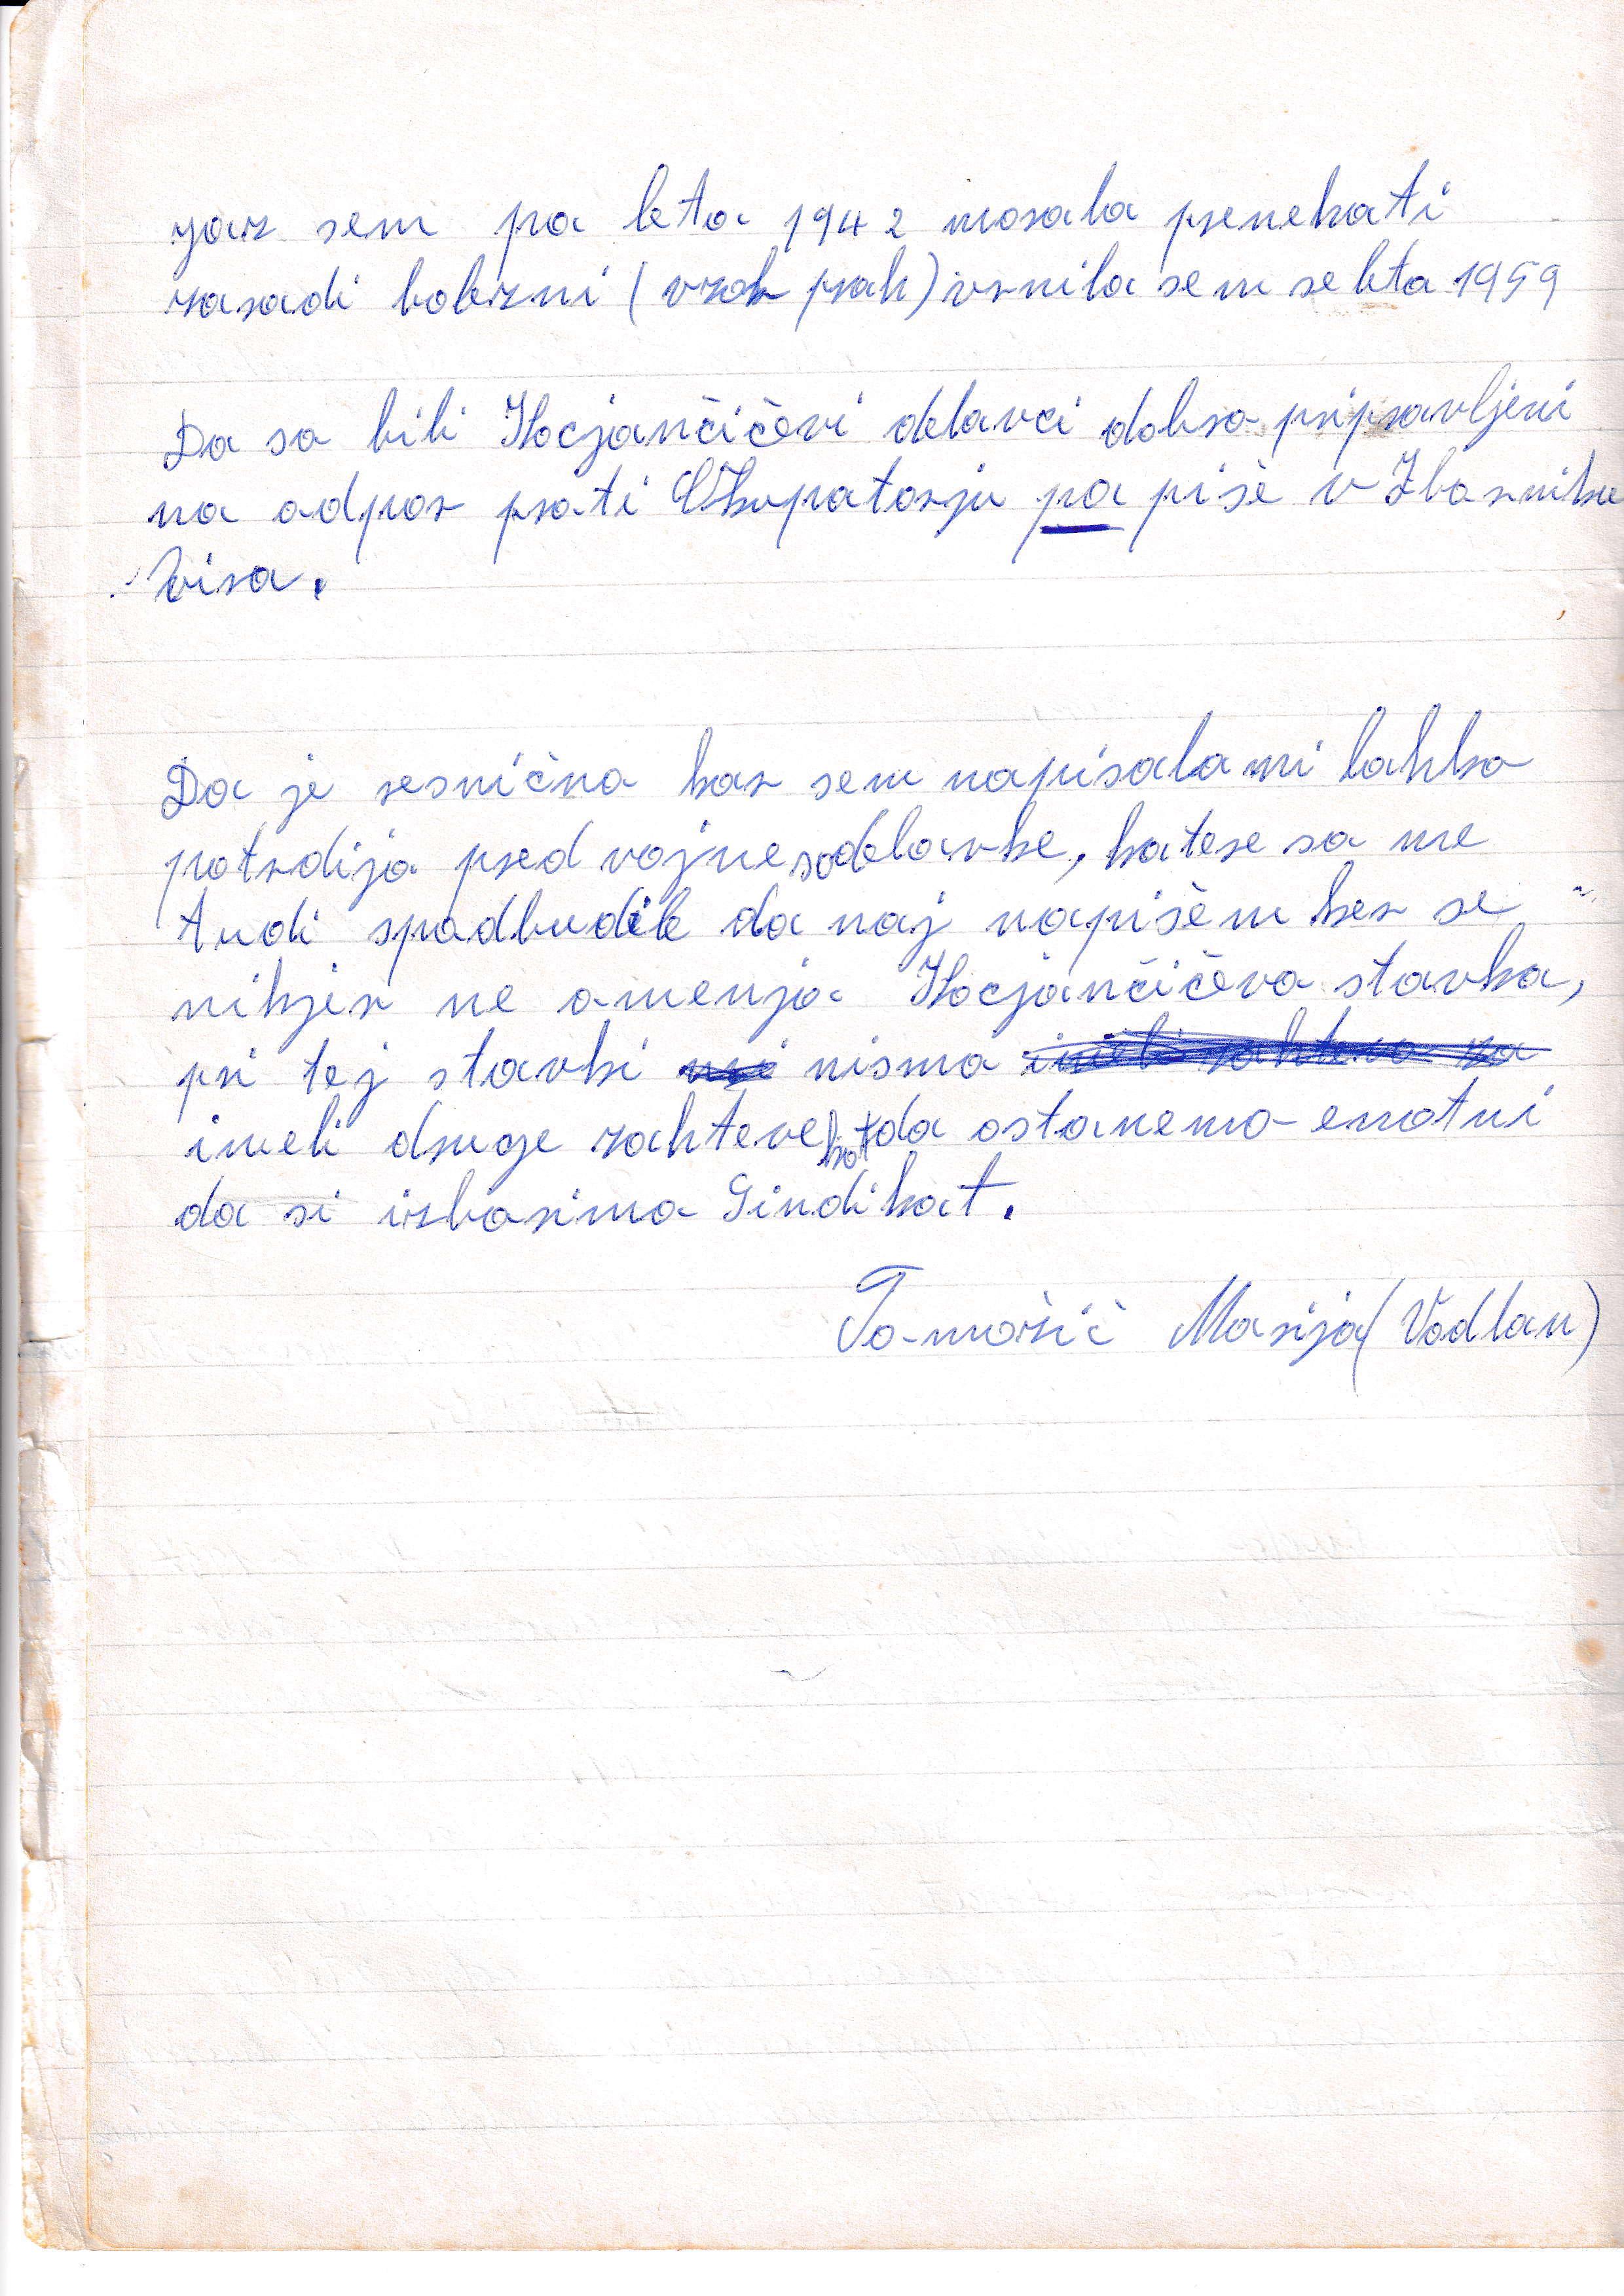 jaz sem pa leta 1942 morala prenehati
zaradi bolezni (vzrok prah) vrnila sem se leta 1959
Da so bili Kocjančičevi delavci dobro pripravljeni
na odpor proti Okupatorju pa piše v Zborniku
Visa.
Da je resnično kar sem napisala mi lahko
potrdijo pred vojne sodelavke, katere so me
tudi spodbudile da naj napišem ker se
nikjer ne omenja Kocjančičeva stavka,
pri tej stavki nismo
imeli druge zahteve kot da ostanemo enotni
da si izborimo Sindikat.
Tomožič Marija (Vodlan)